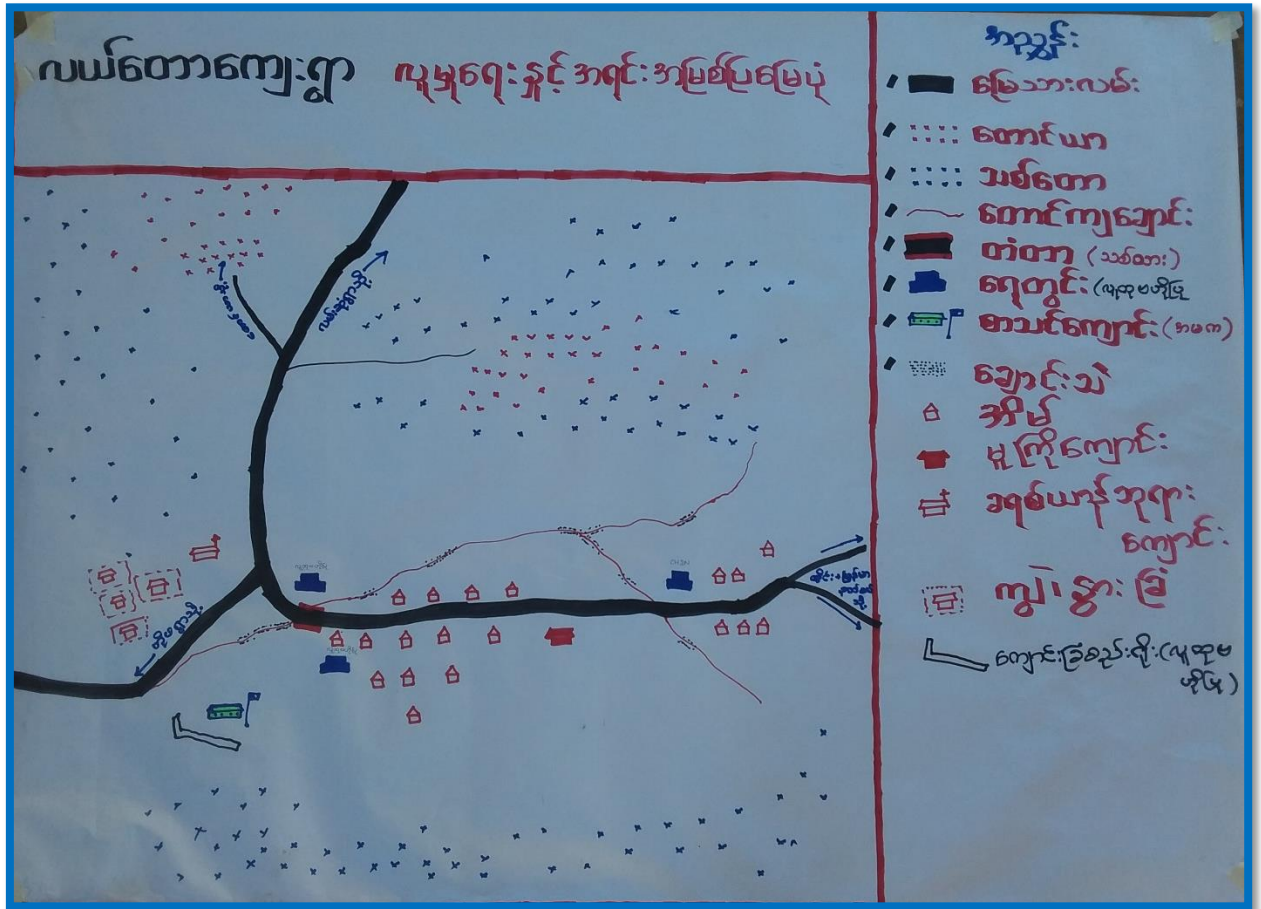 လယ်တောကျေးရွာ လူမှုရေးနှင့်အရင်းအမြစ်ပြမြေပုံ
အညွှန်း
မြေသားလမ်း
တောင်ယာ
သစ်တော
တောင်ကျချောင်း
တံတာ (သစ်ထား)
ရေတွင်း (လူထုဗဟိုပြု
စာသင်ကျောင်း (အမက)
ချောင်းသဲ
အိမ်
မူကြိုကျောင်း
ခရစ်ယာန်ဘုရား
ကျောင်း
ကျွဲ၊ နွား ခြံ
ကျောင်းခြံစည်းရိုး (လူထုဗ
ဟိုပြု)